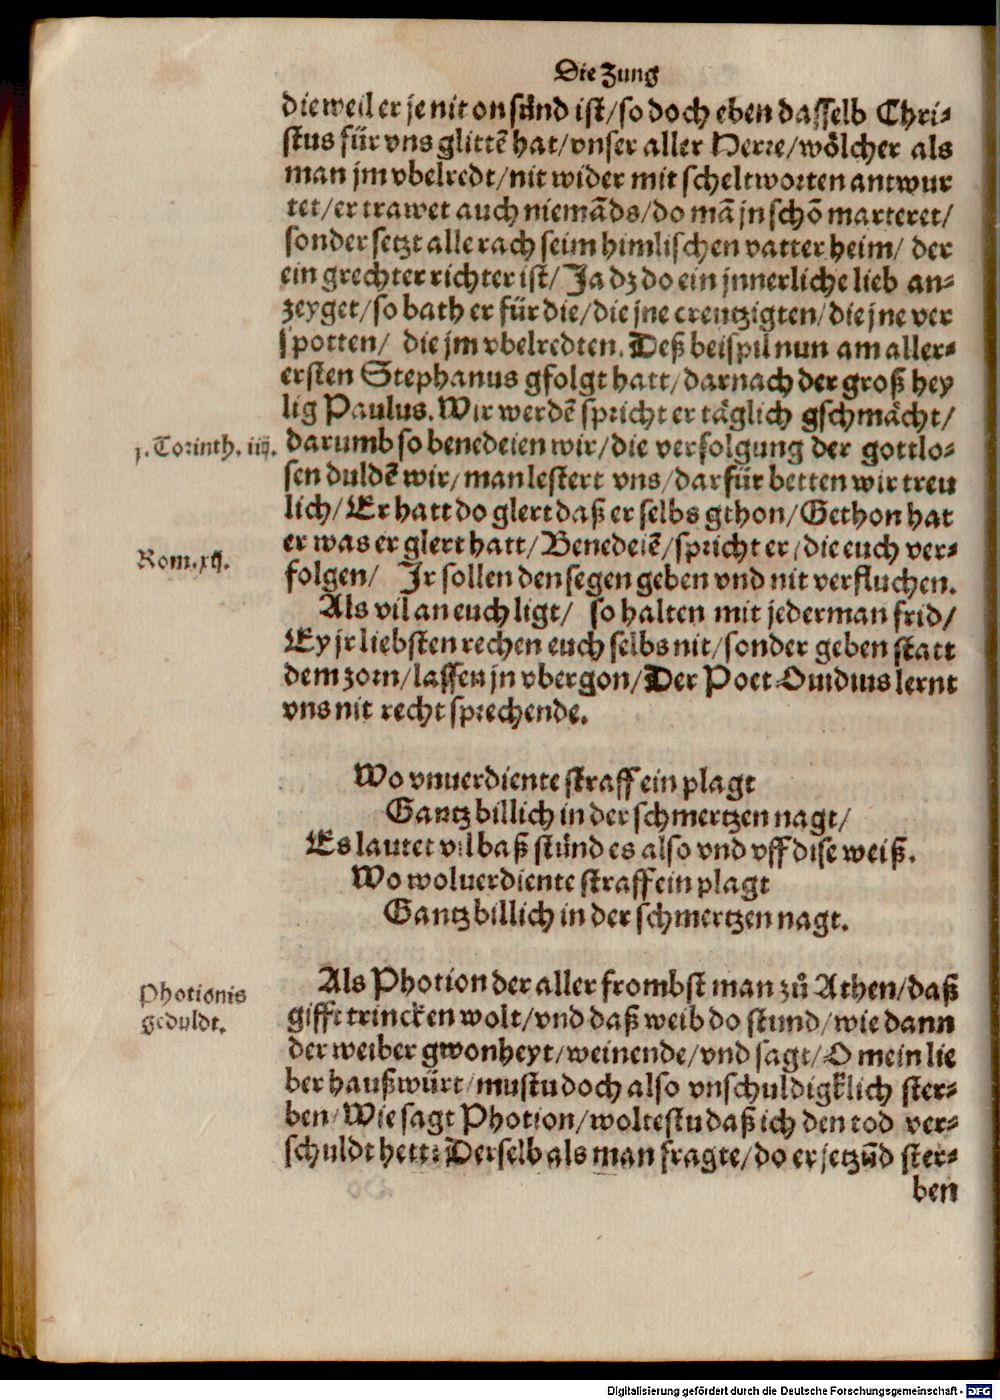 Die Zung
dieweil er je nit on sünd ist/so doch eben dasselb Chri-
stus für vns glittẽ hat/vnser aller Herre/wölcher als
man jm vbelredt/nit wider mit scheltworten antwur
tet/er trawet auch niemãds/do mã jn schõ marteret/
sonder setzt alle rach seim himlischen vatter heim/ der
ein grechter richter ist/ Ja dz do ein jnnerliche lieb an-
zeyget/so bath er für die/die jne creutzigten/die jne ver
spotten/ die jm vbelredten. Deß beispil nun am aller-
ersten Stephanus gfolgt hatt/darnach der groß hey
lig Paulus. Wir werdẽ spricht er täglich gschmächt/
j. Corinth. iiij.
darumb so benedeien wir/die verfolgung der gottlo-
sen duldẽ wir/man lestert vns/darfür betten wir treu
lich/Er hatt do glert daß er selbs gthon/Gethon hat
Rom. xij.
er was er glert hatt/Benedeiẽ/spricht er/die euch ver-
folgen/ Jr sollen den segen geben vnd nit verfluchen.
Als vil an euch ligt/ so halten mit jederman frid/
Ey jr liebsten rechen euch selbs nit/sonder geben statt
dem zorn/lassen jn vbergon/Der Poet Ouidius lernt
vns nit recht sprechende.
Wo vnuerdiente straff ein plagt
Gantz billich in der schmertzen nagt/
Es lautet vil baß stünd es also vnd vff dise weiß.
Wo woluerdiente straff ein plagt
Gantz billich in der schmertzen nagt.
Photionis
geduldt.
Als Photion der aller frombst man zů Athen/daß
gifft trincken wolt/vnd daß weib do stund/wie dann
der weiber gwonheyt/weinende/vnd sagt/O mein lie
ber haußwürt/mustu doch also vnschuldigklich ster-
ben/Wie sagt Photion/woltestu daß ich den tod ver-
schuldt hett: Derselb als man fragte/do er jetzũd ster-
ben
Digitalisierung gefördert durch die Deutsche Forschungsgemeinschaft - DFG